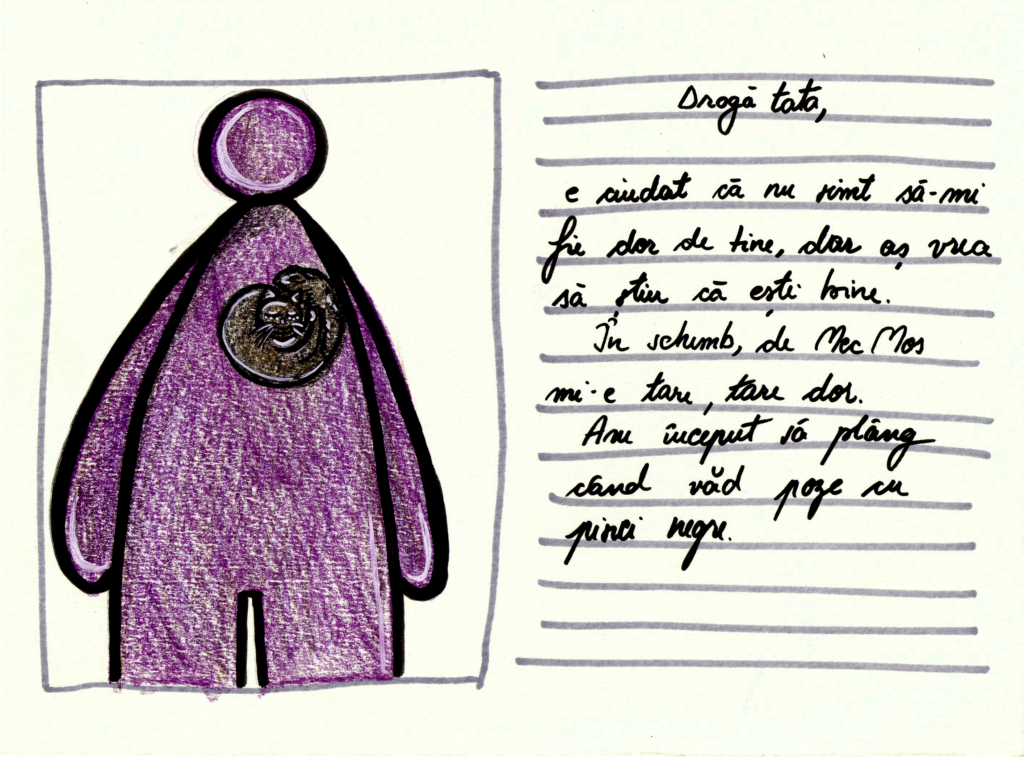 Dragă tata,
e ciudat că nu simt să-mi
fie dor de tine, dar aș vrea
să știu că ești bine.
În schimb, de Mec Mos
mi-e tare, tare dor.
Am început să plâng
când văd poze cu
pisici negre.